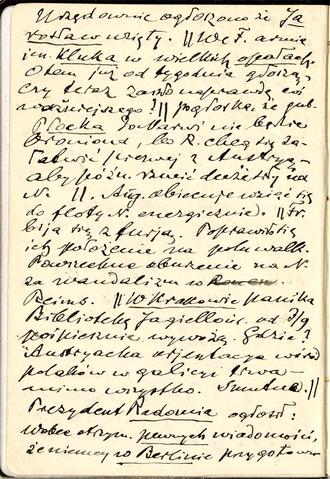 Urzędownie ogłoszono że Ja
rosław wzięty. || We F. armia
jen. Klucka w wielkich opałach.
O tem już od tygodnia głoszą,
czy teraz zaszło naprawdę coś
|| Pogłoska, że gub.
Płocka po Narwi nie będzie
broniona, bo R. chcą się za-
łatwić pierwej z Austryą,
aby późn. rzucić się na
N. || Ang. obiecuje wziąć się
do floty N. energicznie. || Fr.
biją się z furją. Poprawiają
ich położenie na polu walk.
Powszechne oburzenie na N.
za wandalizm w
Reims. || W Krakowie panika
Bibliotekę Jagiellońs. od
pośpiesznie wywożą. Gdzie?
Austryacka orjentacya wśród
polaków w galicyi trwa-
mimo wszystko. Smutne. ||
Prezydent Radomia ogłosił:
wobec otrzym. pewnych wiadomości,
że niemcy w Berlinie przygotow